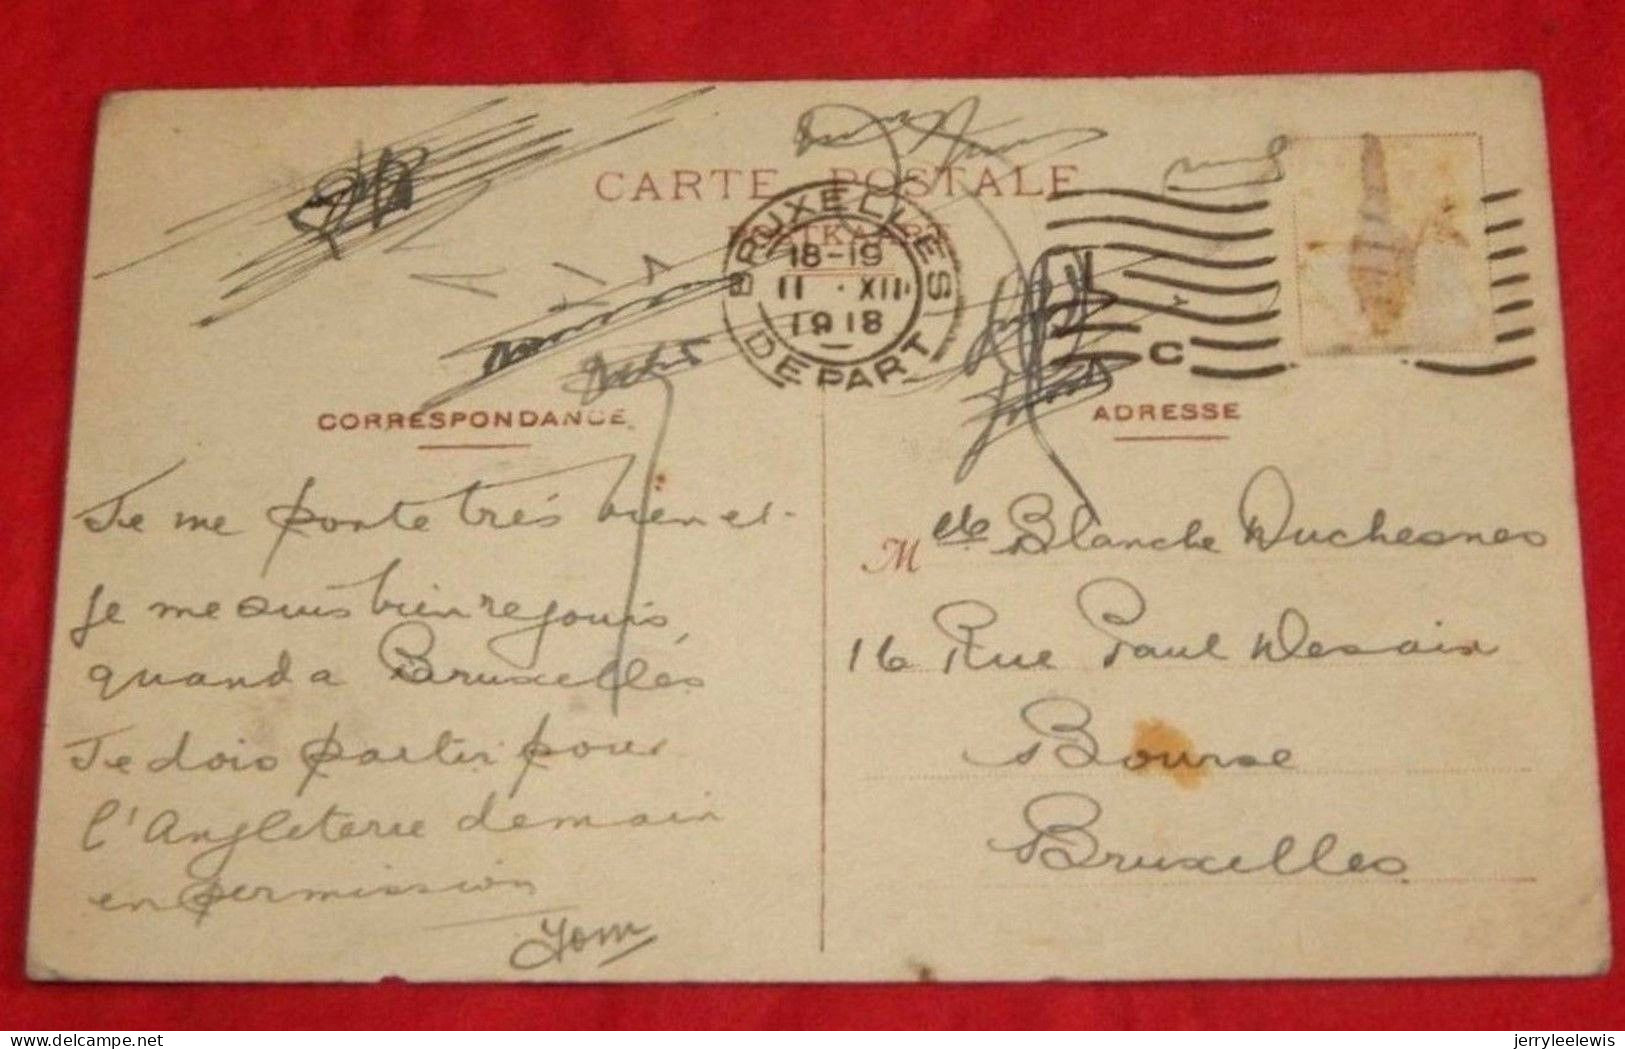 CARTE POSTALE
BRUXELLES
18-19
11 · XII
1918
DEPART
C
CORRESPONDANCE
ADRESSE
Je me porte très bien et
je me suis bien rejouis
quand a Bruxelles
Je dois partir pour
l'Angleterre demain
en permission
Tom
M elle Blanche Duchesnes
16 Rue Paul Desain
Bourse
Bruxelles
delcampe.net
jerryleelewis